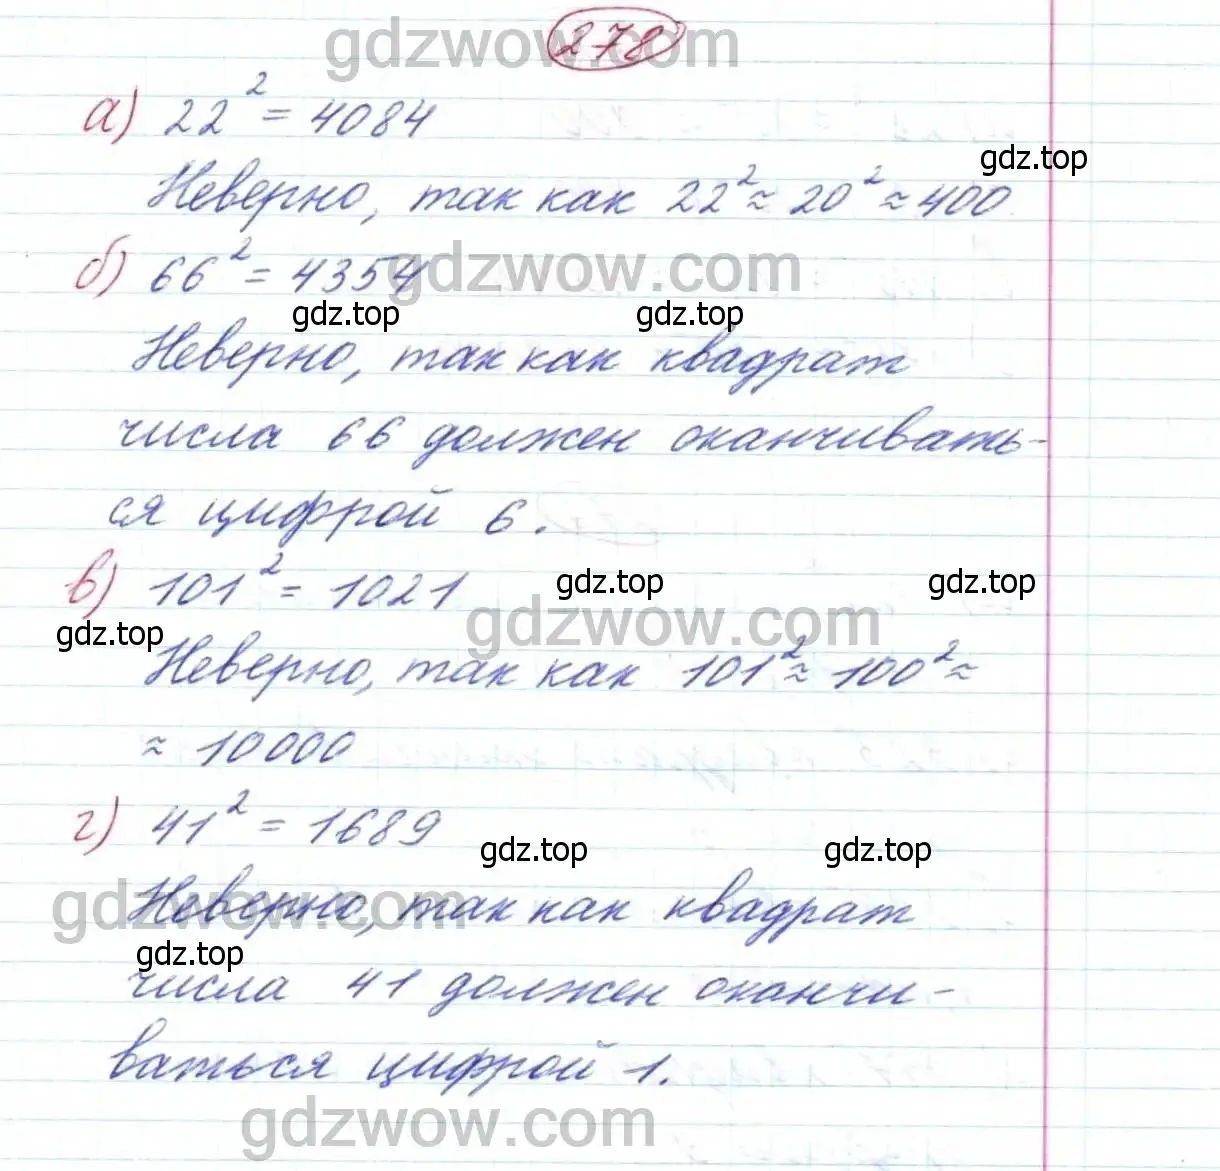 gdzwow.com
278
а) 22² = 4084
gdz.top
Неверно, так как 22² ≈ 20² ≈ 400
gdzwow.com
б) 66² = 4354
gdz.top gdz.top
Неверно, так как квадрат
числа 66 должен оканчивать-
ся цифрой 6.
в) 101² = 1021
gdz.top gdz.top
gdzwow.com
gdz.top
Неверно, так как 101² ≈ 100² ≈
≈ 10000
г) 41² = 1689
gdz.top gdz.top
gdzwow.com
Неверно, так как квадрат
gdz.top
числа 41 должен оканчи-
ваться цифрой 1.
gdzwow.com